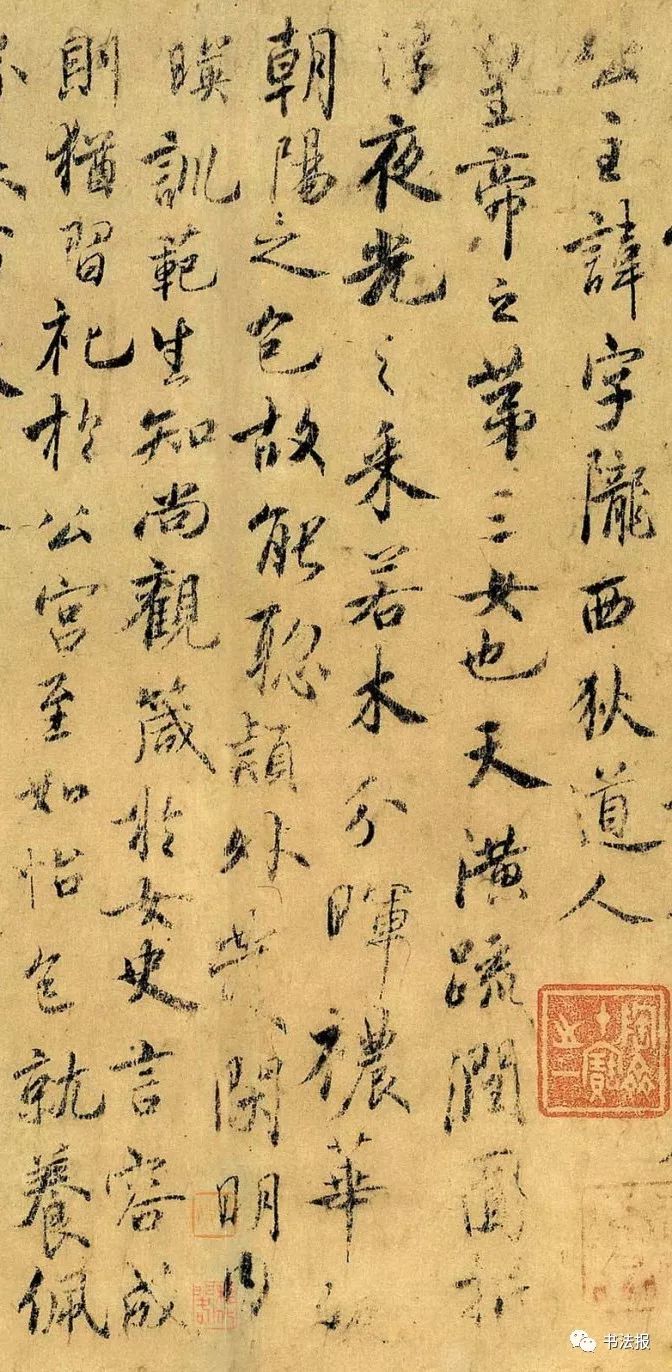 公主諱字隴西狄道人
皇帝之第三女也天潢疏潤圓折
浮夜光之采若木分暉穠華
朝陽之色故能聰穎外發閑明内
暎訓範生知尚觀箴於女史言容成
則猶習祀於公宮至如怡色就養佩
书法报